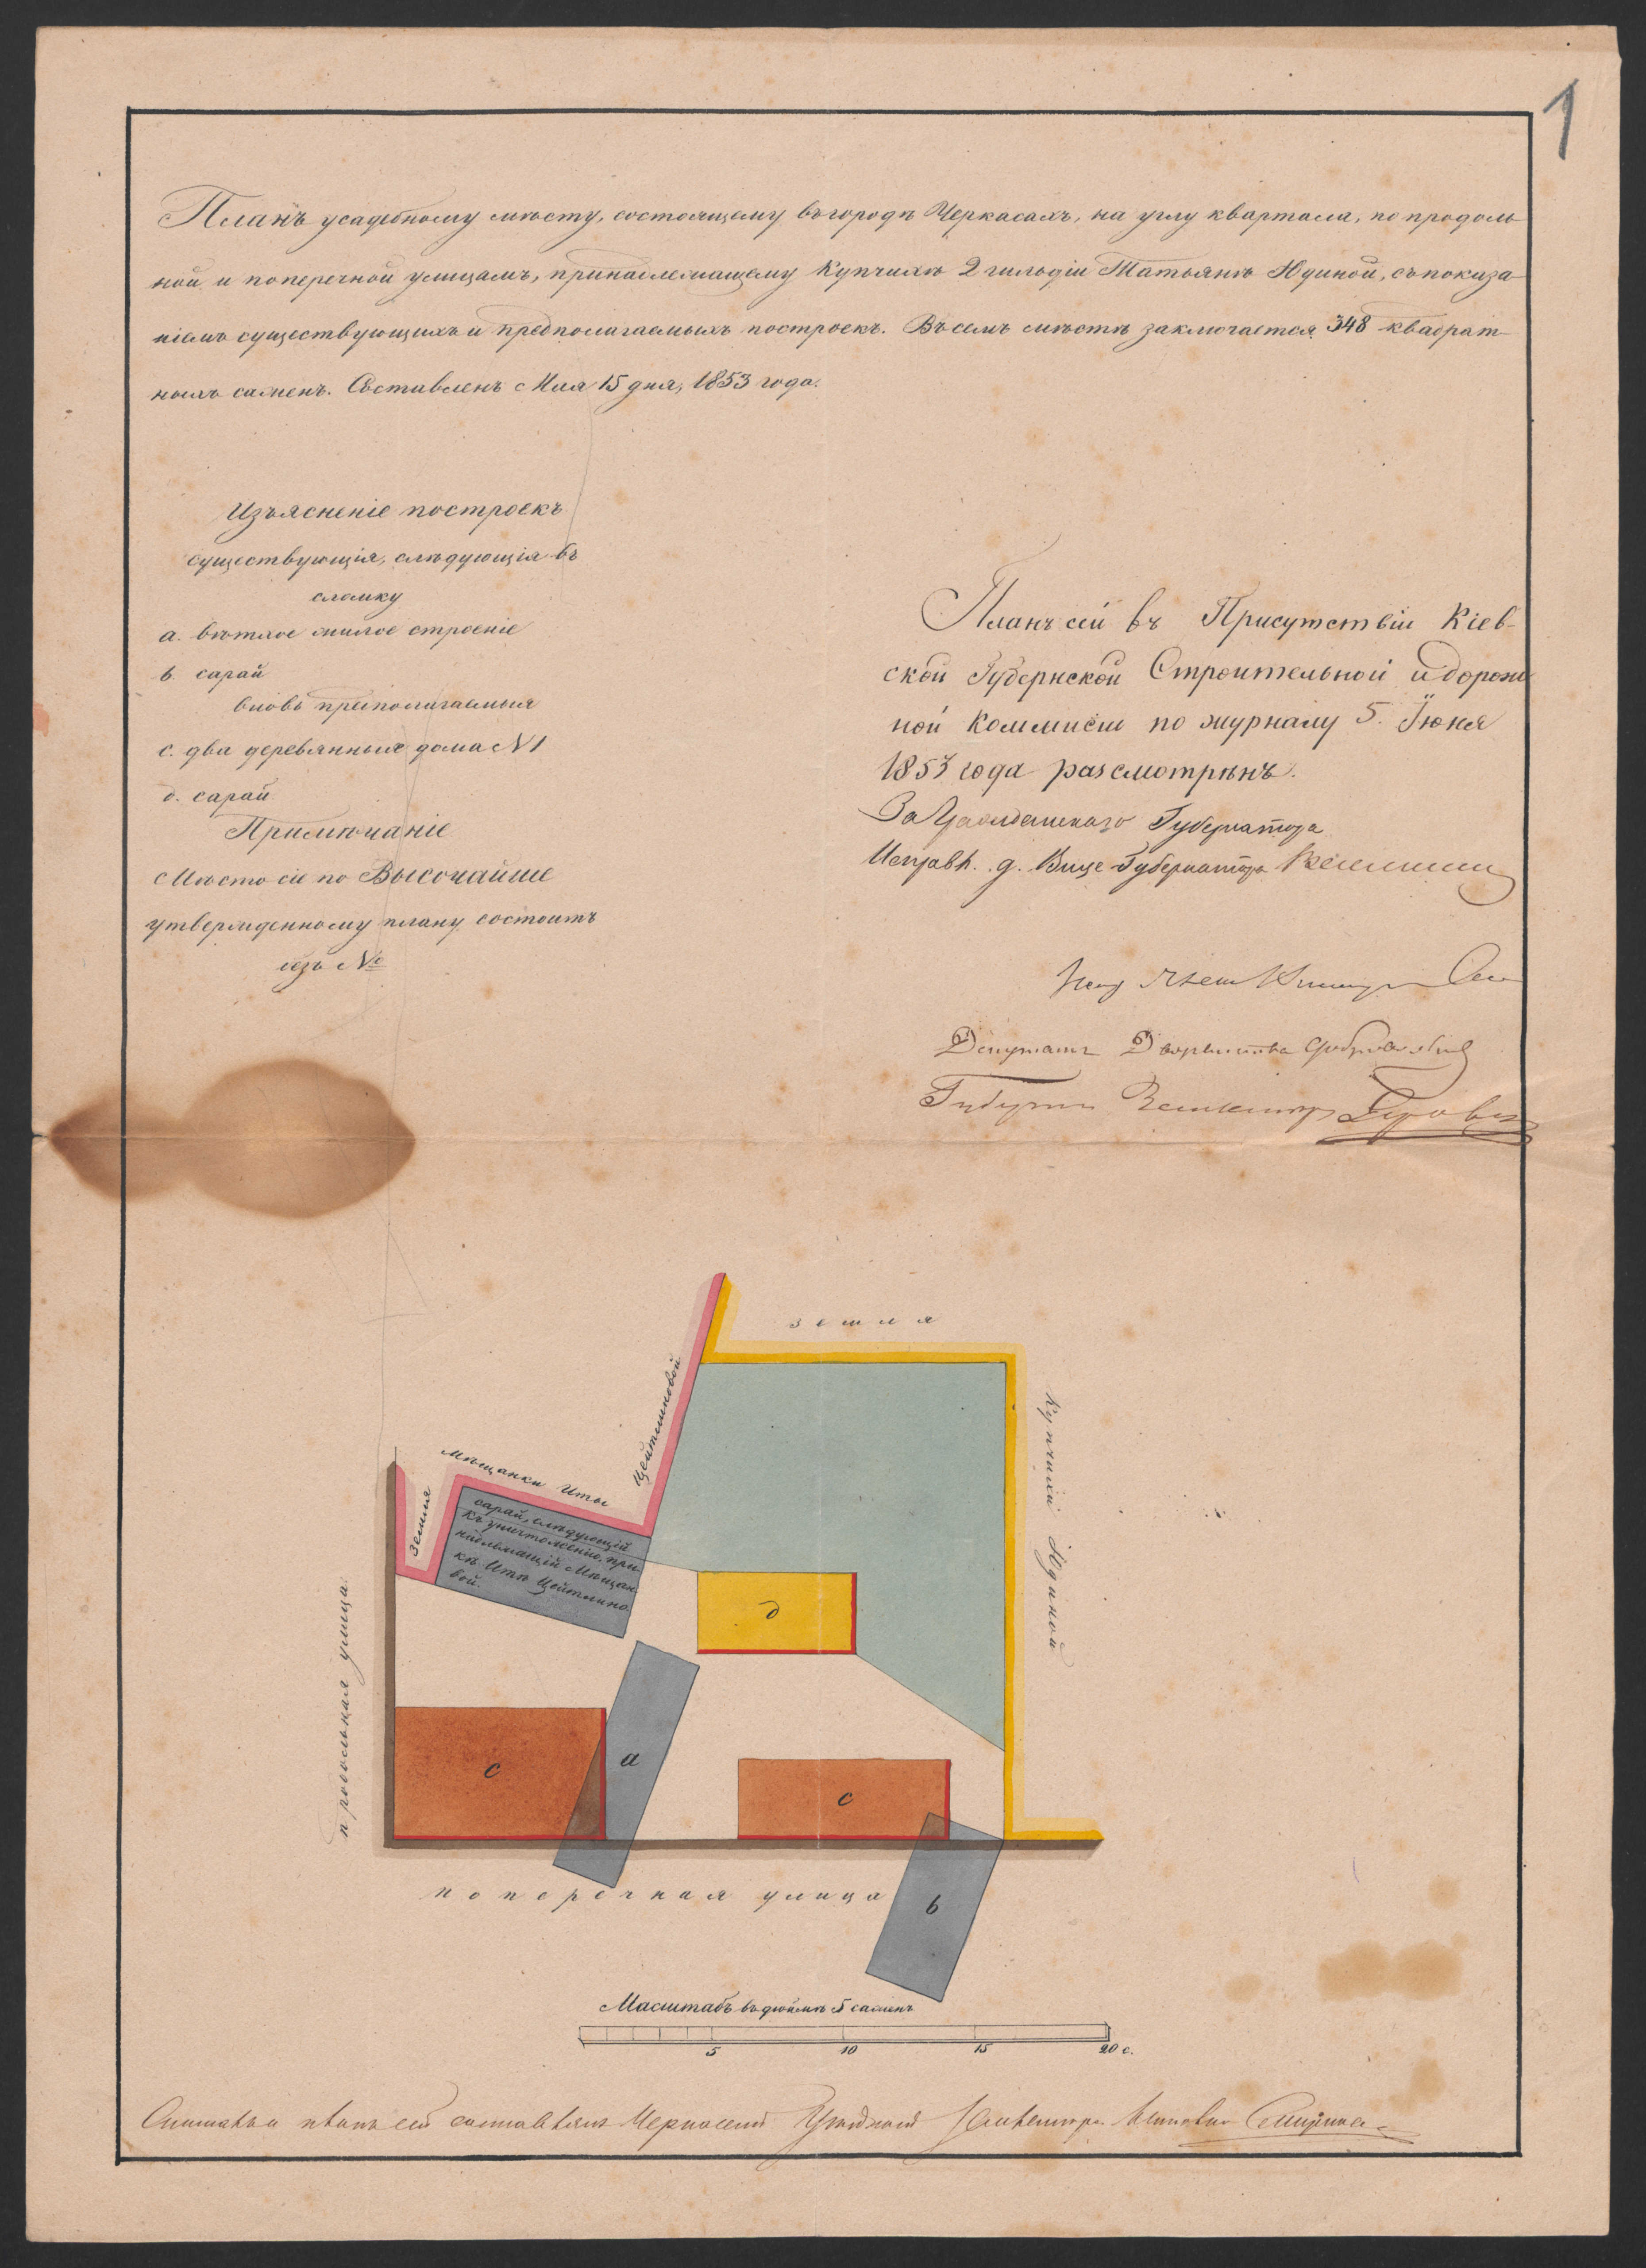 1
Планъ усадебному мѣсту, состоящему въ городѣ Черкасахъ, на углу квартала, по продоль
ной и поперечной улицамъ, принадлежащему Купчихѣ 2 гильдіи Татьянѣ Юдиной, съ показа
ніемъ существующихъ и предполагаемыхъ построекъ. Въ семъ мѣстѣ заключается 348 квадрат-
ныхъ сажень. Составленъ Мая 15 дня, 1853 года.
Изъясненіе построекъ
существующія, слѣдующія въ
сломку
a. ветхое жилое строеніе
b. сарай
вновь предполагаемыя
c. два деревянныя дома N 1
д. сарай
Примѣчаніе
Мѣсто сіе по Высочайше
утвержденному плану состоитъ
безъ №
Планъ сей въ Присутствіи Кіев-
ской Губернской Строительной и дорож
ной Коммисіи по журналу 5. Іюня
1853 года разсмотрѣнъ.
За Гражданскаго Губернатора
Исправл. д. Вице Губернатора
Депутатъ Дворянства
Землемѣръ
земля
Цейтлиновой
Мѣщанки Иты
земля
сарай, слѣдующій
къ уничтоженію, при
надлежащій Мѣщан
кѣ Итѣ Цейтлино
вой.
Купчихи Юдиной
продольная улица
д
c
a
c
поперечная улица
b
Масштабъ въ дюймѣ 5 сажень
5 10 15 20 с.
планъ сей составлялъ Черкаскій Уѣздный Землемѣръ